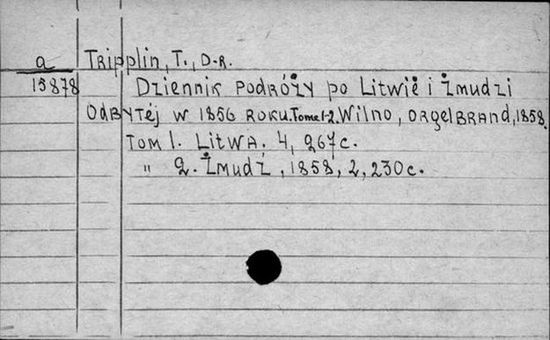 a Tripplin, T., D-r.
15878 Dziennik podróży po Litwiė i Żmudzi
odbytéj w 1856 roku. Tome 1-2. Wilno, Orgelbrand, 1858.
Tom 1. Litwa. 4, 267 c.
" 2. Żmudź, 1858, 2, 230 c.